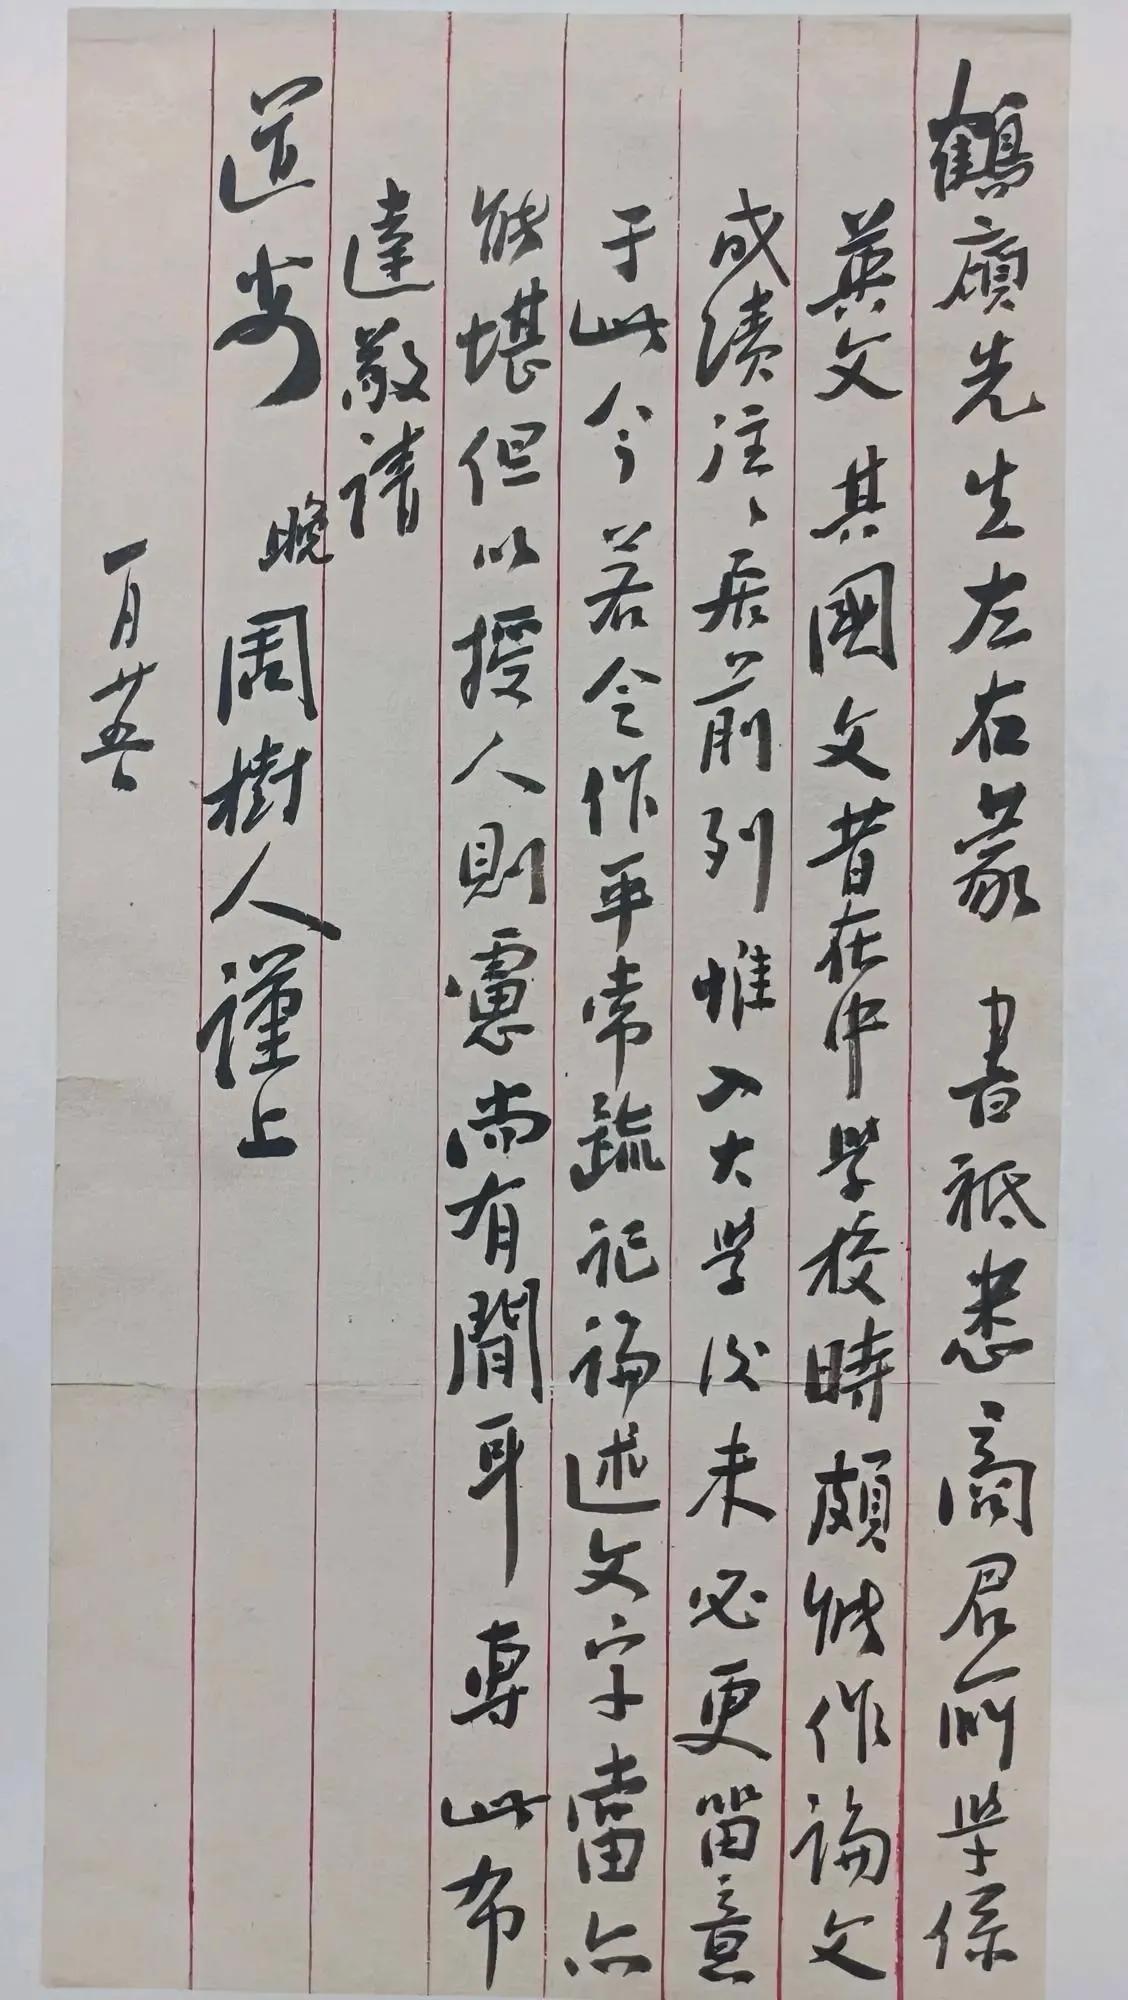 鶴廎先生左右蒙 書祗悉商君所学係
英文其國文昔在中学校時頗能作論文
成績注〻居前列惟入大学後未必更留意
于此今若令作平常疏記論述文字當亦
能堪但以授人則慮尚有閒耳專此布
達敬請
道安
晚周樹人謹上
一月廿五日